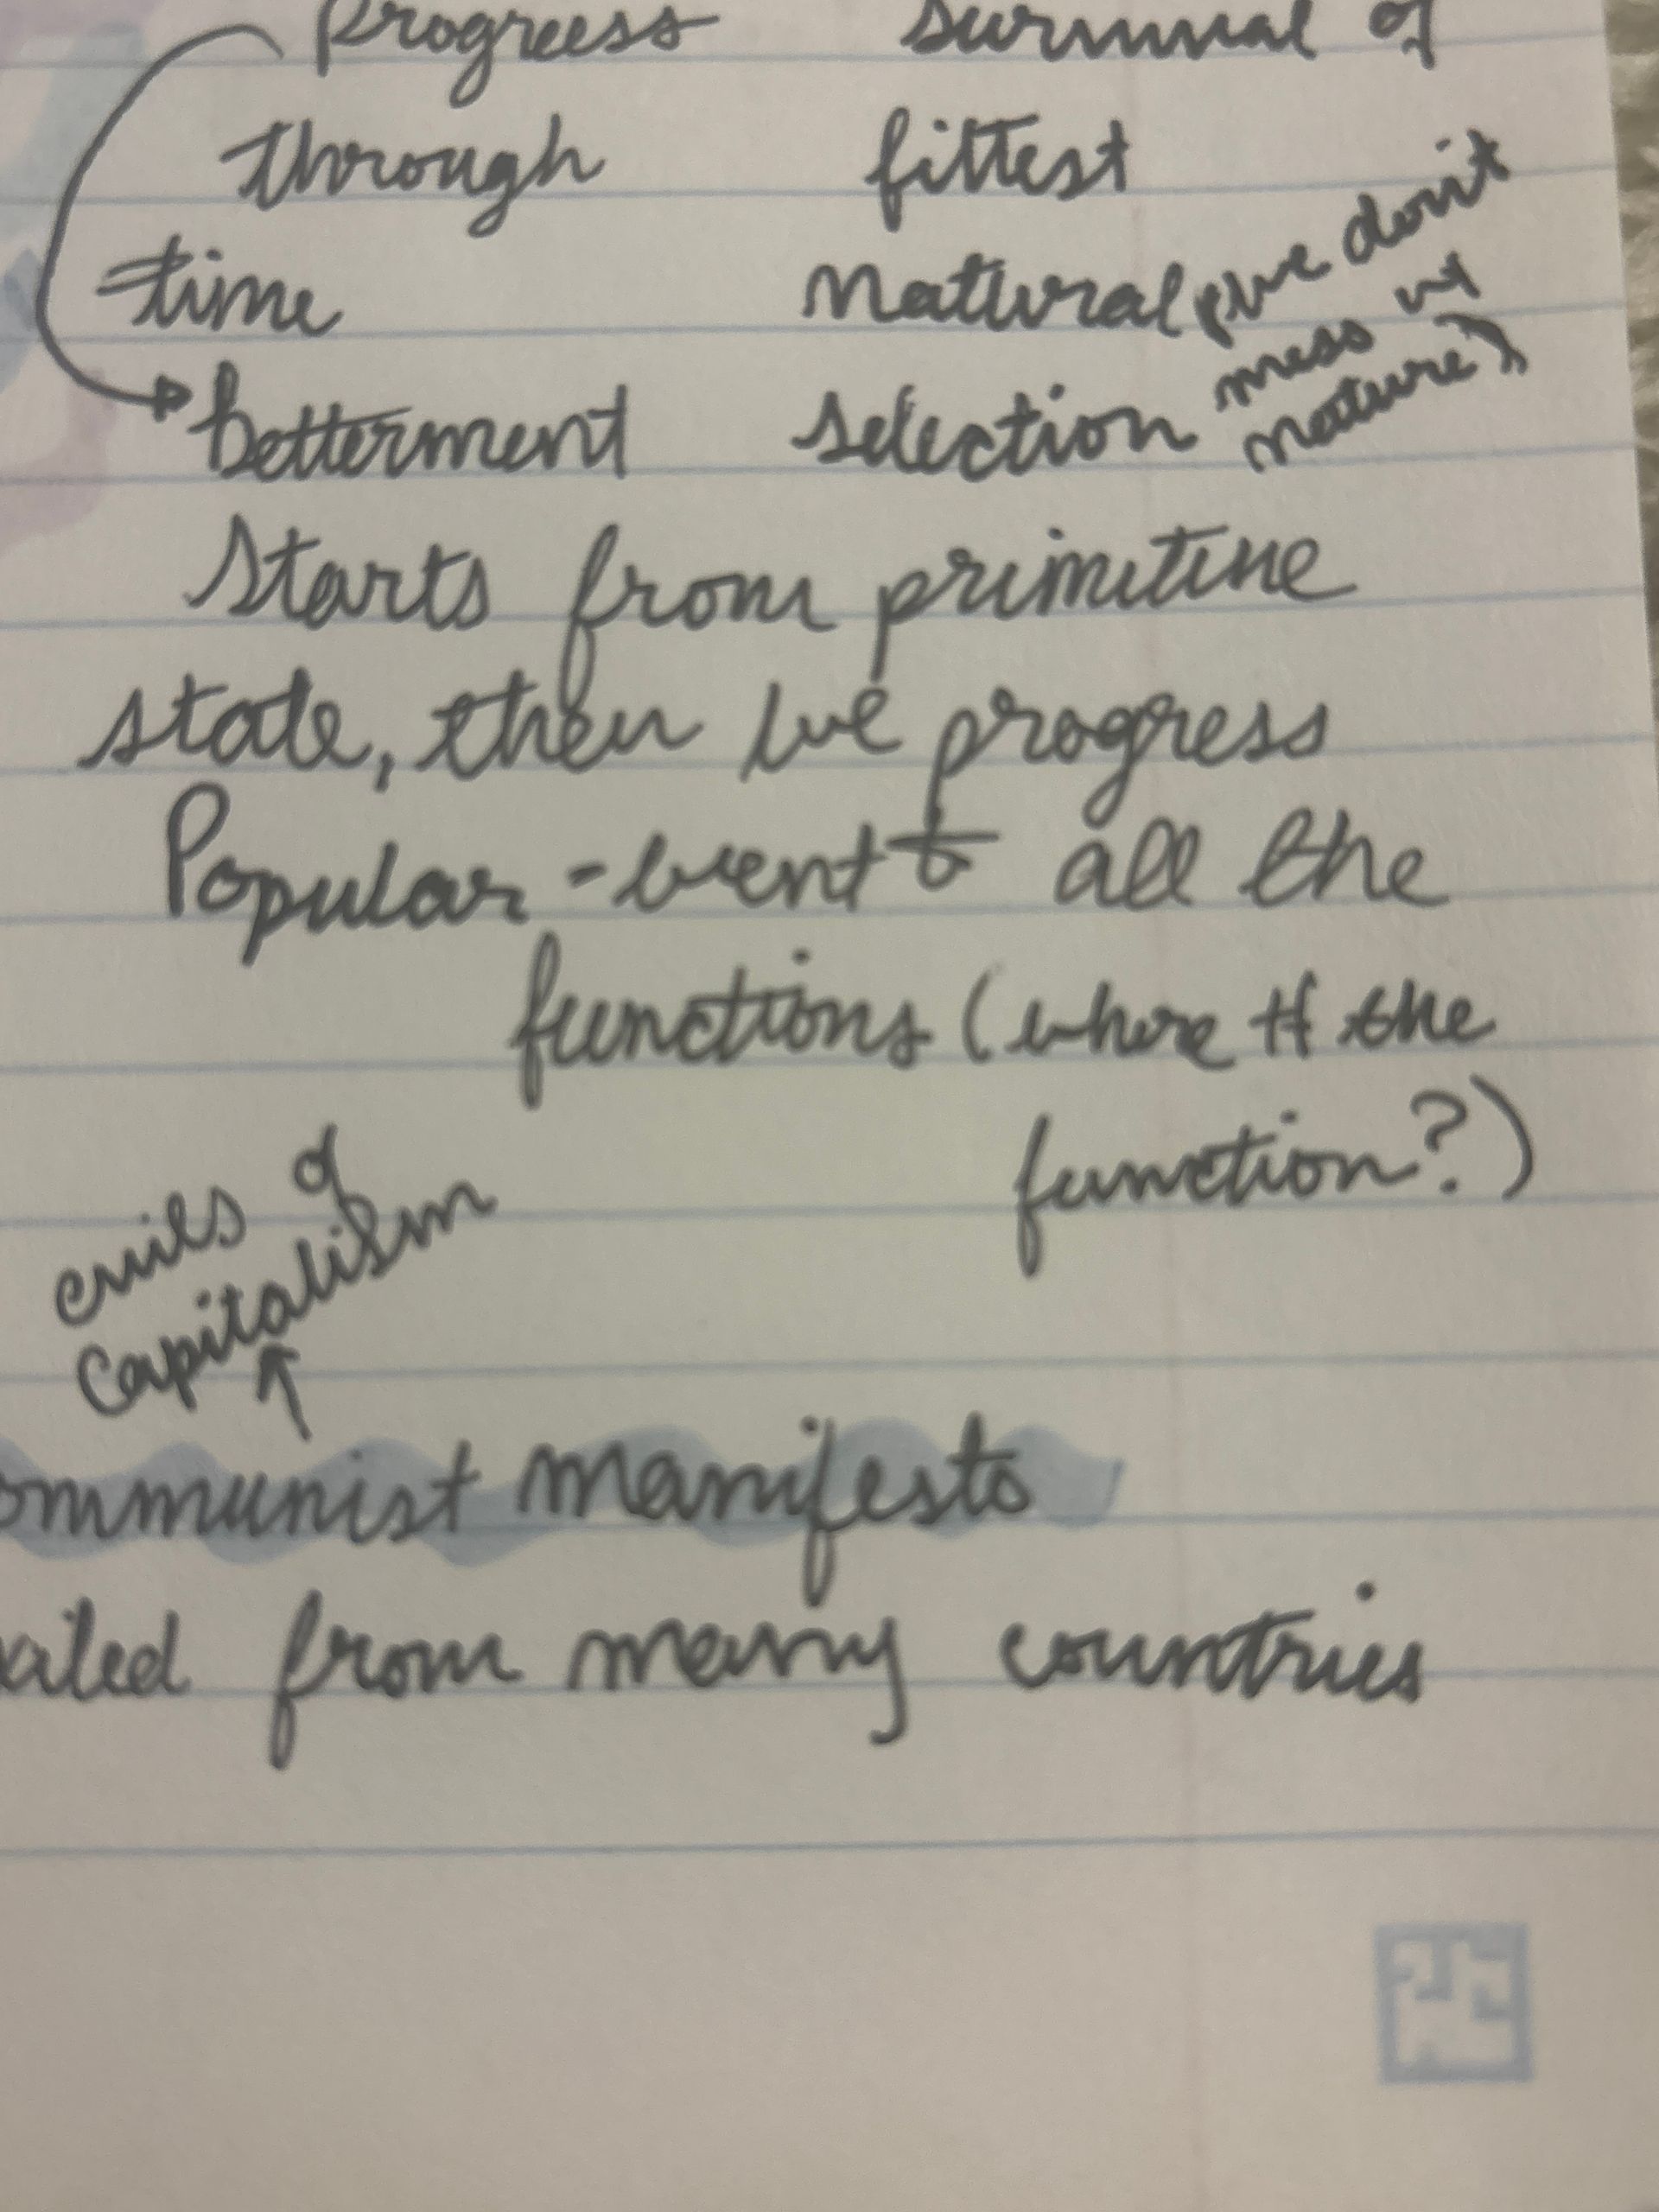 Progress survival of
through fittest
time natural (we don't
mess w/
nature)
betterment selection
starts from primitive
state, then we progress
Popular - went to all the
functions (where tf the
function?)
evils of
capitalism
ommunist manifesto
from many countries